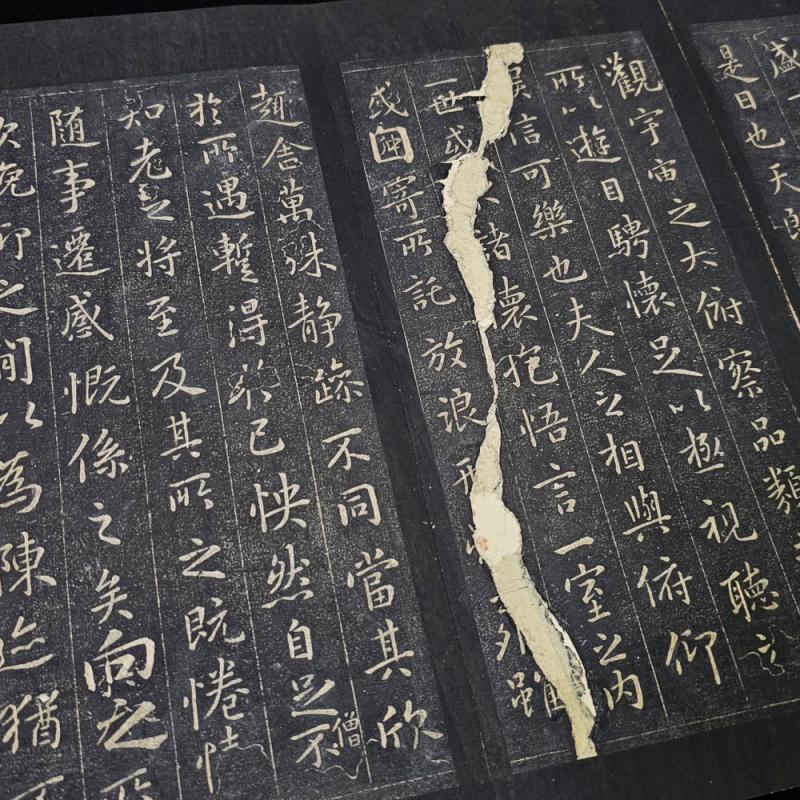 盛一
是日也天朗
觀宇宙之大俯察品類
所以遊目騁懷足以極視聽之
信可樂也夫人之相與俯仰
一世或諸懷抱悟言一室之內
或因寄所託放浪形外雖
趣舍萬殊靜躁不同當其欣
於所遇蹔得於己怏然自足不
僧
知老之將至及其所之既惓情
随事遷感慨係之矣向之所
欣俛仰之間以為陳迹猶不